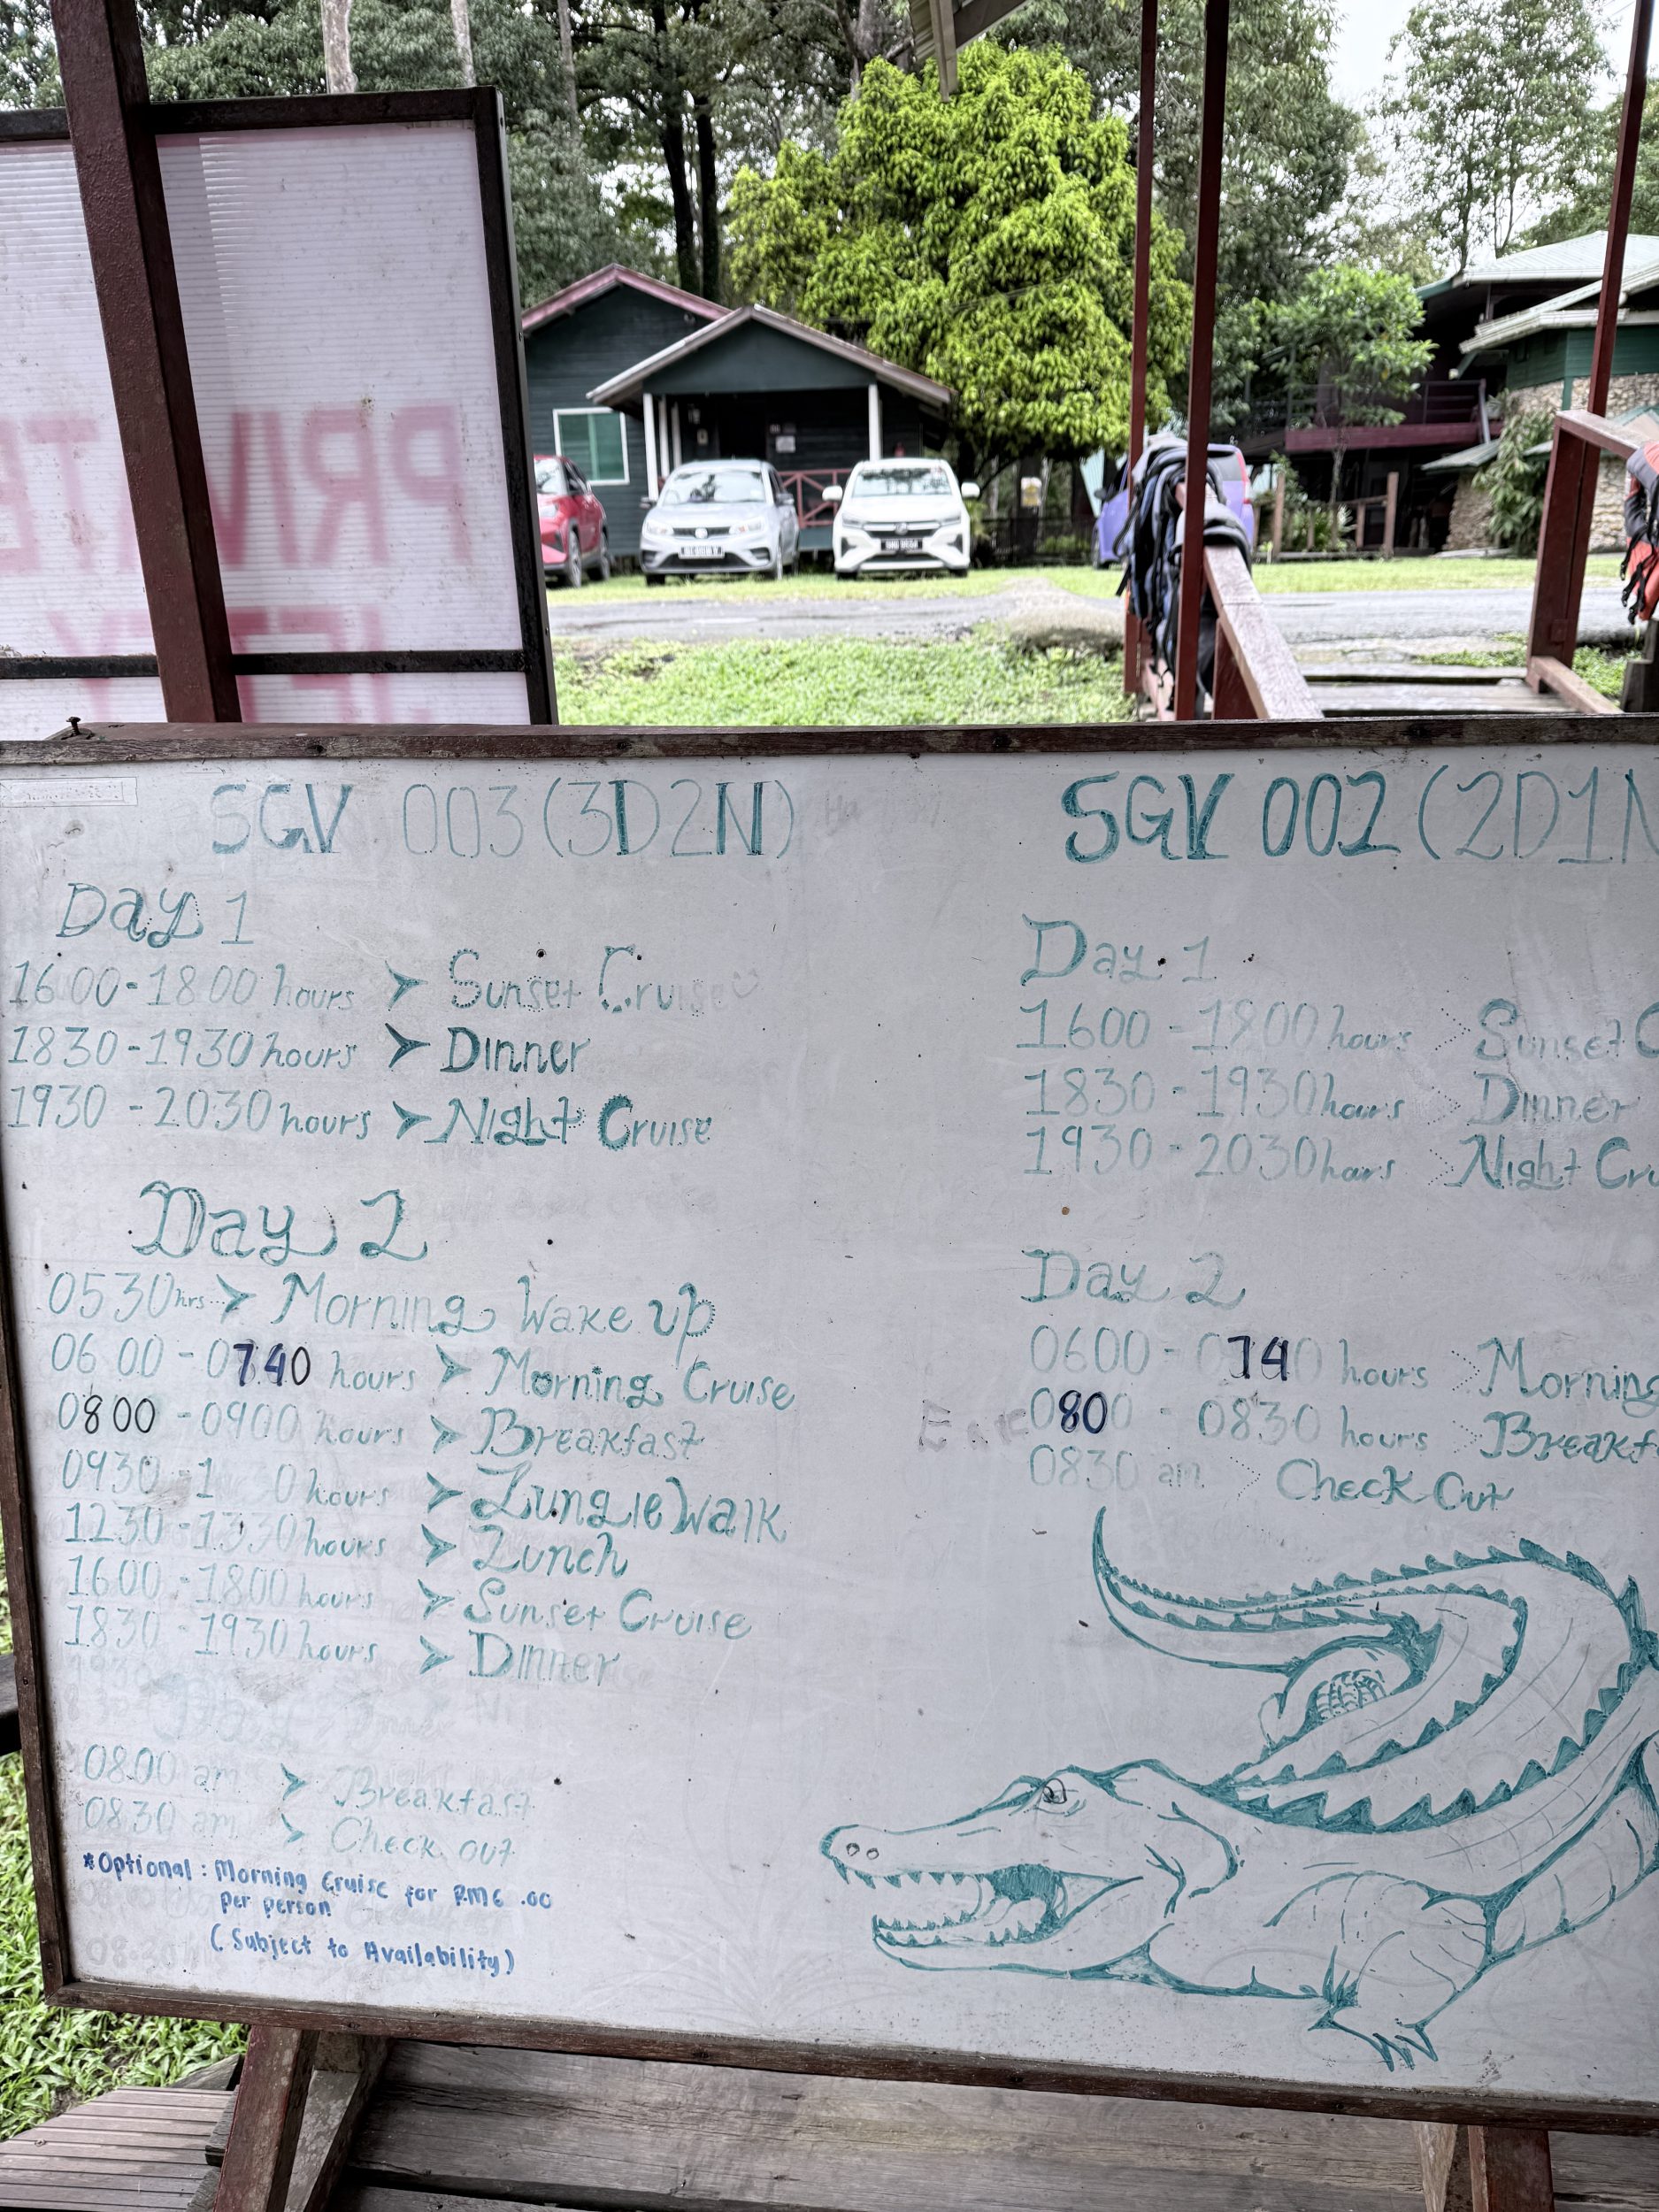 PRIVATE
JETTY
SGV 003 (3D2N)
Day 1
1600-1800 hours > Sunset Cruise
1830-1930 hours > Dinner
1930-2030 hours > Night Cruise
Day 2
0530hrs > Morning Wake up
0600-0740 hours > Morning Cruise
0800-0900 hours > Breakfast
0930-1 0 hours > Jungle Walk
1230-1330 hours > Lunch
1600-1800 hours > Sunset Cruise
1830-1930 hours > Dinner
0800 am > Breakfast
0830 am > Check out
*Optional: Morning Cruise for
per person
(Subject to Availability)
SGV 002 (2D1N
Day 1
1600-1800 hours > Sunset C
1830-1930 hours > Dinner
1930-2030 hours > Night Cru
Day 2
0600-0740 hours > Morning
0800-0830 hours > Breakfa
0830 am > Check Out